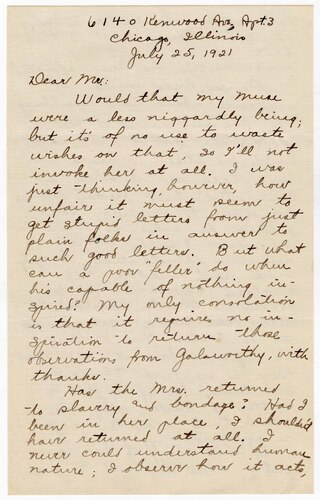 6140 Kenwood Ave, Apt 3
Chicago, Illinois
July 25, 1921
Dear Mrs:
Would that my Muse
were a less niggardly being;
but it's of no use to waste
wishes on that, so I'll not
invoke her at all. I was
just thinking, however, how
unfair it must seem to
get stupid letters from just
plain folks in answer to
such good letters. But what
can a poor "feller" do when
his capable of nothing in-
spired? My only consolation
is that it requires no in-
spiration to return those
observations from Galsworthy, with
thanks.
Has the Mrs. returned
to slavery and bondage? Had I
been in her place, I shouldn't
have returned at all. I
never could understand human
nature; I observe how it acts,